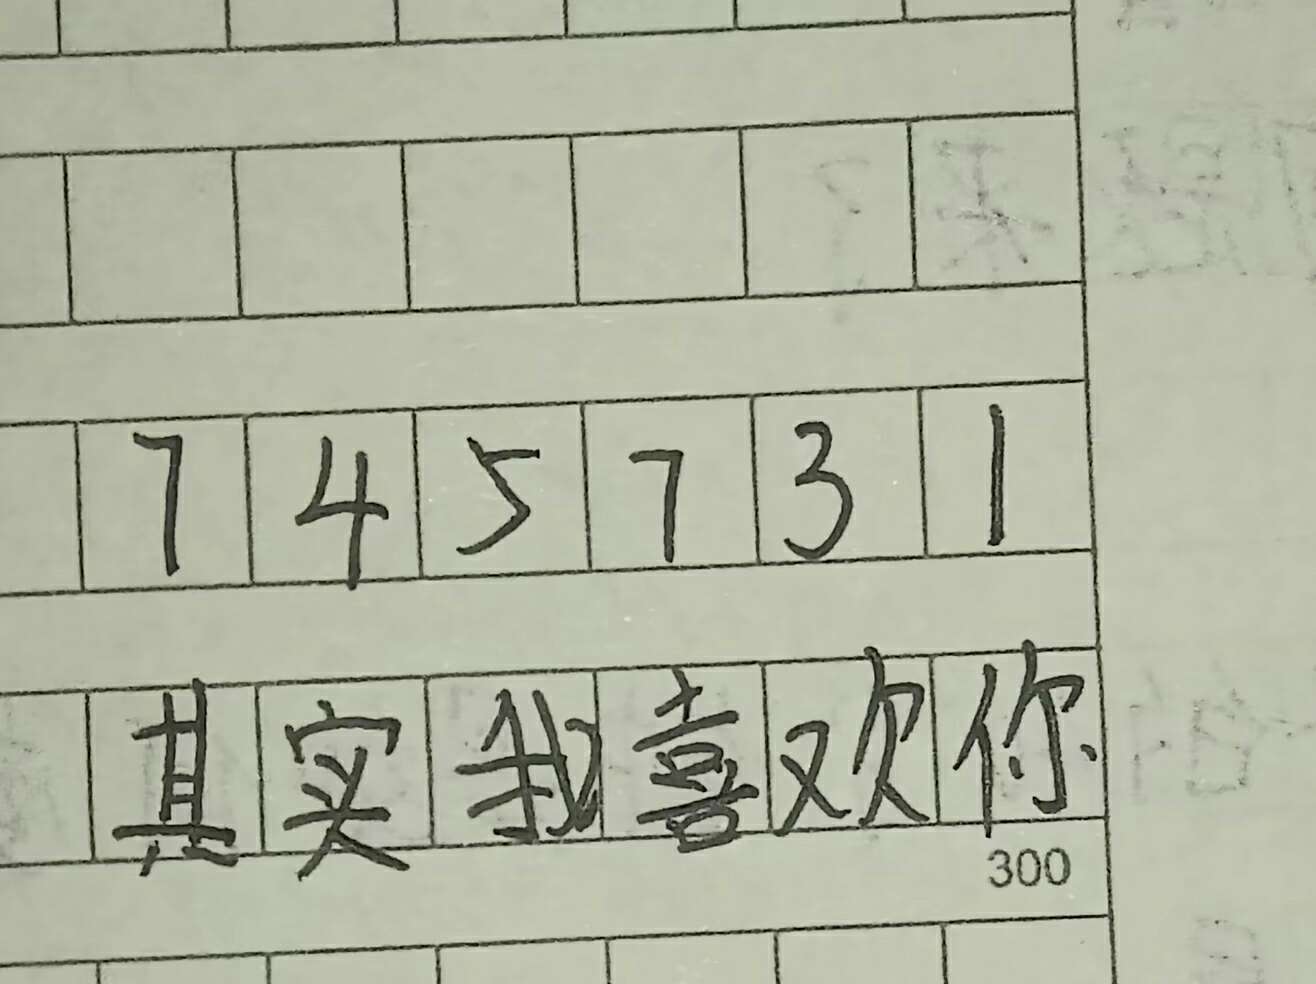 745731
其实我喜欢你
300